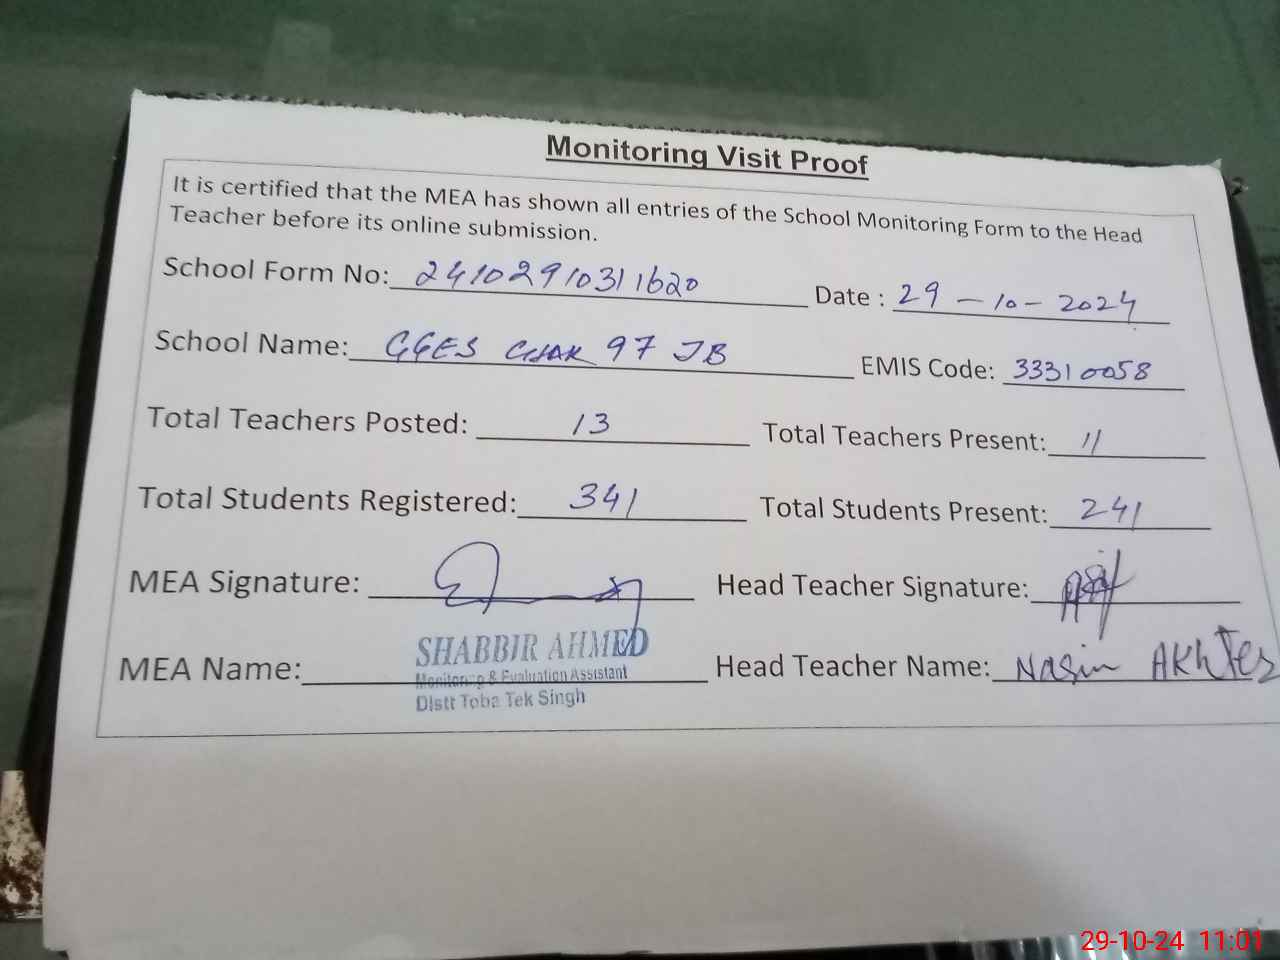 Monitoring Visit Proof
It is certified that the MEA has shown all entries of the School Monitoring Form to the Head
Teacher before its online submission.
School Form No: 24102910311620 Date : 29-10-2024
School Name: GGES CHAK 97 JB EMIS Code: 33310058
Total Teachers Posted: 13 Total Teachers Present: 11
Total Students Registered: 341 Total Students Present: 241
MEA Signature: Head Teacher Signature:
MEA Name: SHABBIR AHMED Head Teacher Name: Nasim Akhter
Monitoring & Evaluation Assistant
Distt Toba Tek Singh
29-10-24 11:01